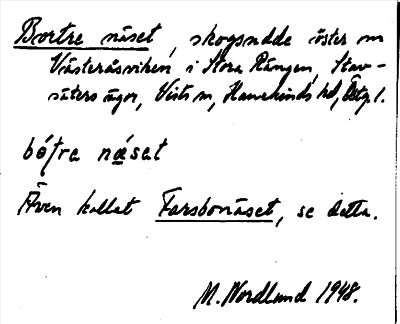 Bortre näset, skogsudde öster om
Västeråsviken i Stora Rängen, Stav-
säters ägor, Vists sn, Hanekinds hd, Östg l.
bótre näset
Även kallat Farsbonäset, se detta.
M. Nordlund 1948.